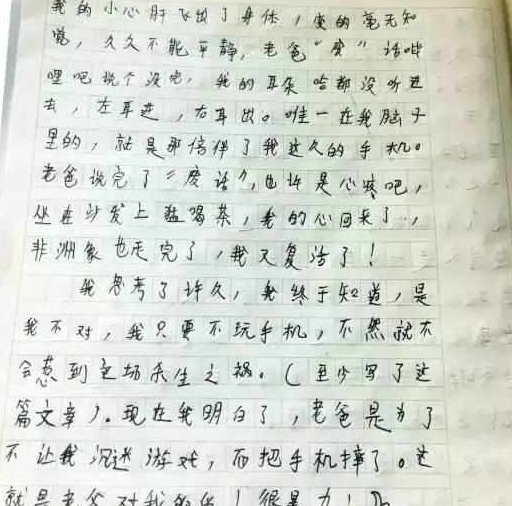 我的小心肝飞出了身体，变的毫无知
觉，久久不能平静，老爸“废”话哔
哩吧说个没完，我的耳朵啥都没听进
去，左耳进，右耳出。唯一在我脑子
里的，就是那陪伴了我这久的手机。
老爸说完了“废话”，也许是心疼吧，
坐在沙发上猛喝茶，我的心回来了，
非洲象也走完了，我又复活了！
我思考了许久，我终于知道，是
我不对，我只要不玩手机，不然就不
会惹到这场杀生之祸。（至少写了这
篇文章）。现在我明白了，老爸是为了
不让我沉迷游戏，而把手机摔了。这
就是老爸对我的